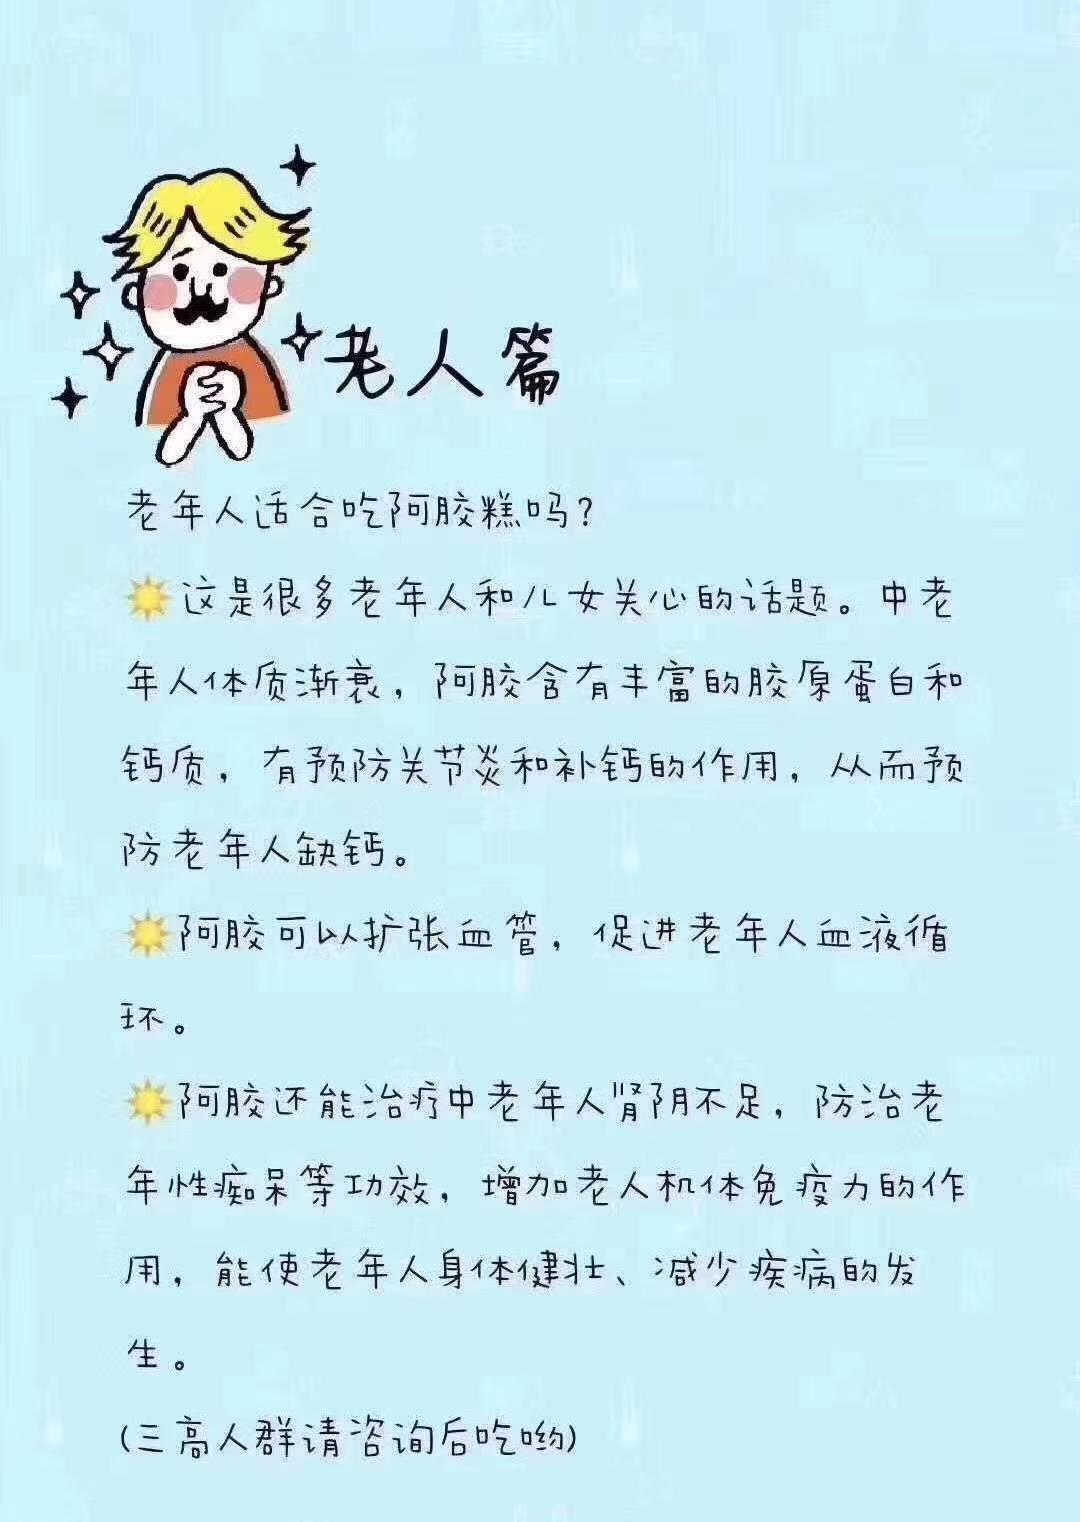 老人篇
老年人适合吃阿胶糕吗?
这是很多老年人和儿女关心的话题。中老
年人体质渐衰，阿胶含有丰富的胶原蛋白和
钙质，有预防关节炎和补钙的作用，从而预
防老年人缺钙。
阿胶可以扩张血管，促进老年人血液循
环。
阿胶还能治疗中老年人肾阴不足，防治老
年性痴呆等功效，增加老人机体免疫力的作
用，能使老年人身体健壮、减少疾病的发
生。
(三高人群请咨询后吃哟)